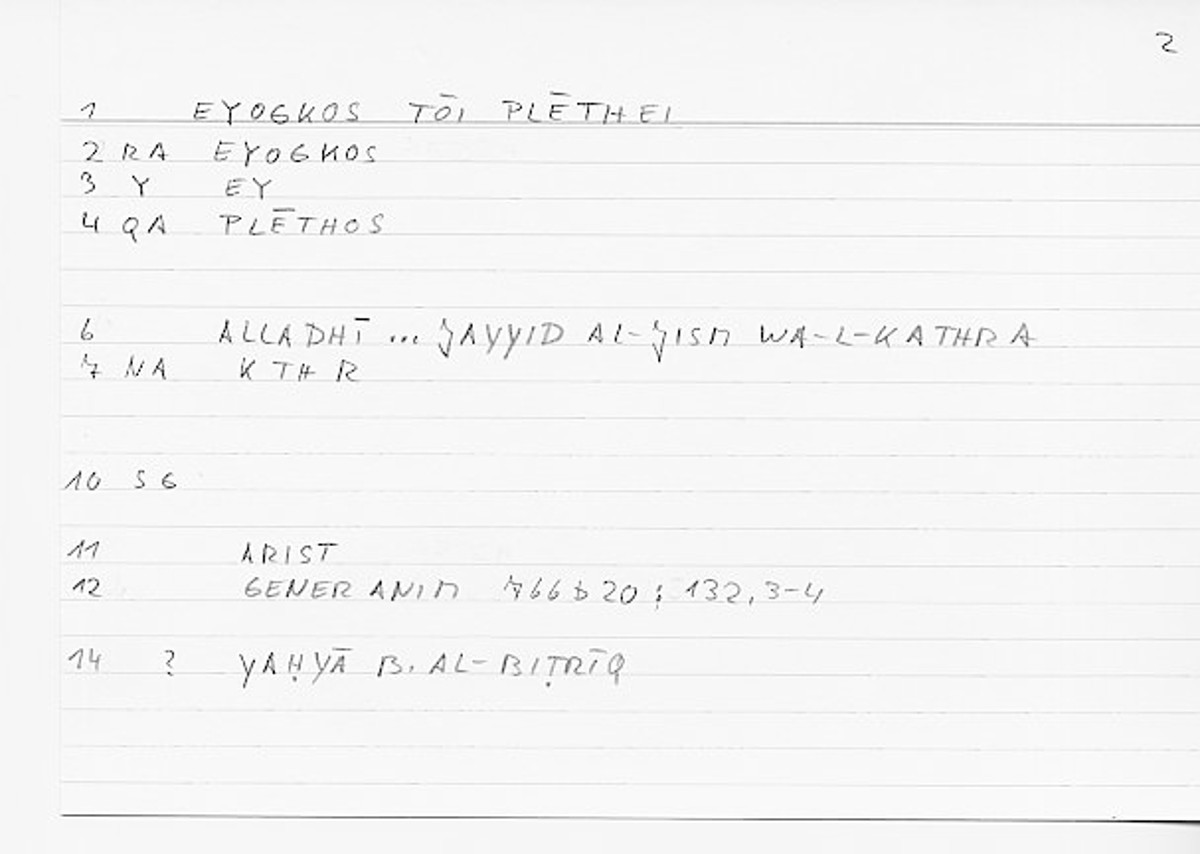 2
1 EYOGKOS TŌI PLĒTHEI
2 RA EYOGKOS
3 Y EY
4 QA PLĒTHOS
6 ALLADHĪ ... JAYYID AL-JISM WA-L-KATHRA
7 NA KTHR
10 SG
11 ARIST
12 GENER ANIM 766b20; 132,3-4
14 ? YAḤYĀ B. AL-BIṬRĪQ